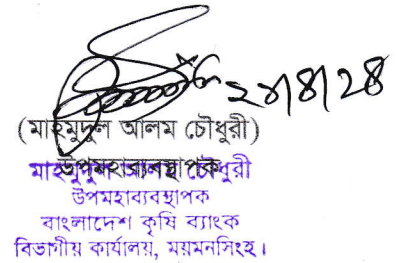 ২৮/৪/২৪
(মাহমুদুল আলম চৌধুরী)
উপমহাব্যবস্থাপক
মাহমুদুল আলম চৌধুরী
উপমহাব্যবস্থাপক
বাংলাদেশ কৃষি ব্যাংক
বিভাগীয় কার্যালয়, ময়মনসিংহ।